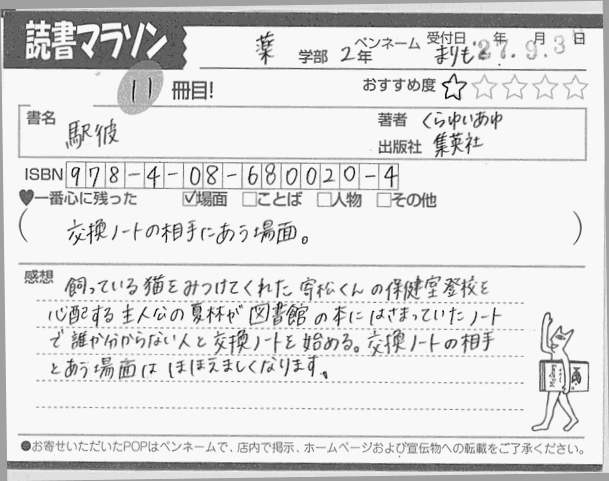 読書マラソン
薬 学部 2年 ペンネーム まりもと. 受付日 '27.9.3 年 月 日
11 冊目!
おすすめ度 ★☆☆☆☆
書名 駅彼
著者 くらゆいあゆ
出版社 集英社
ISBN 978-4-08-680020-4
♥一番心に残った ☑場面 □ことば □人物 □その他
( 交換ノートの相手にあう場面。 )
感想
飼っている猫をみつけてくれた寄松くんの保健室登校を
心配する主人公の夏林が図書館の本にはさまっていたノート
で誰か分からない人と交換ノートを始める。交換ノートの相手
とあう場面はほほえましくなります。
●お寄せいただいたPOPはペンネームで、店内で掲示、ホームページおよび宣伝物への転載をご了承ください。